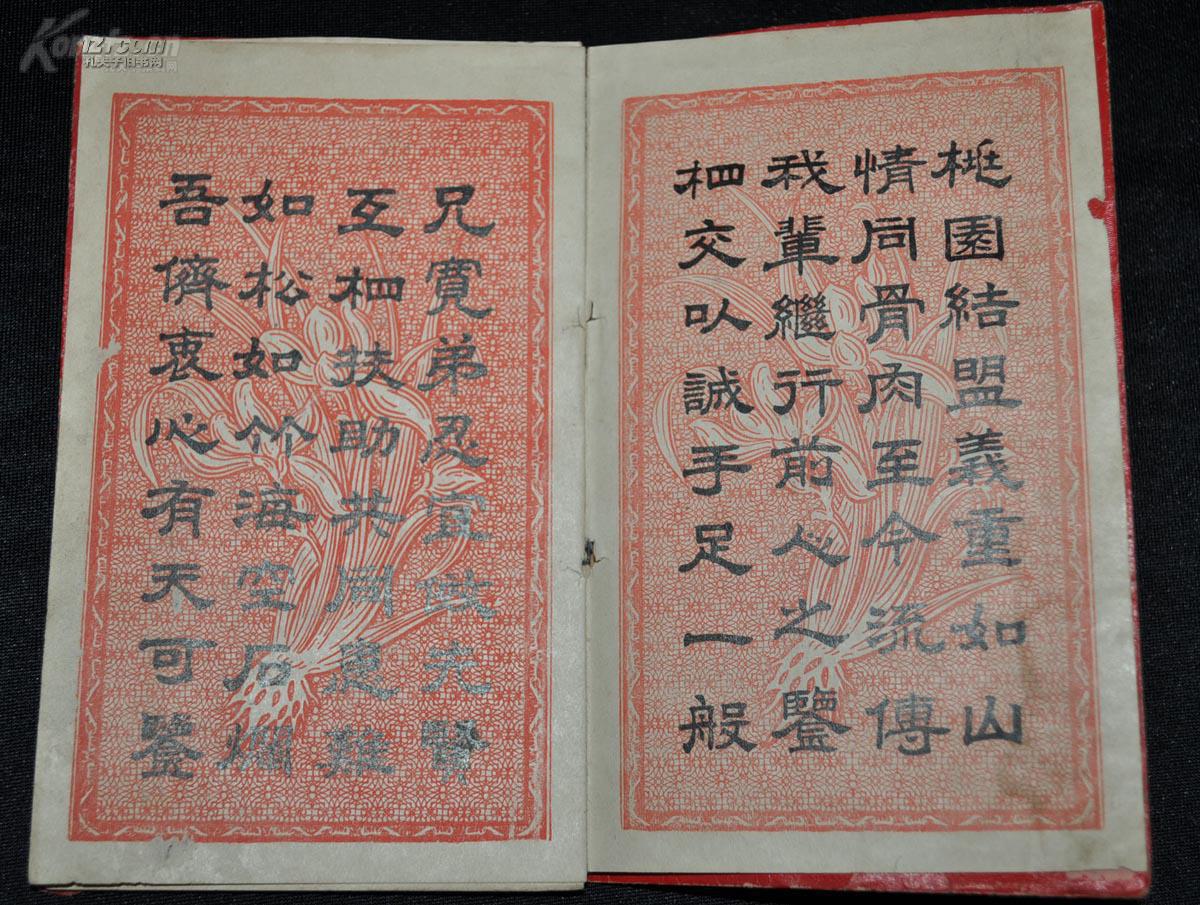 桃園結盟義重如山
情同骨肉至今流傳
我輩繼行前心之鑒
相交以誠手足一般
兄寬弟忍宜傚先賢
互相扶助共同患難
如松如竹海空石爛
吾儕衷心有天可鑒
孔夫子旧书网